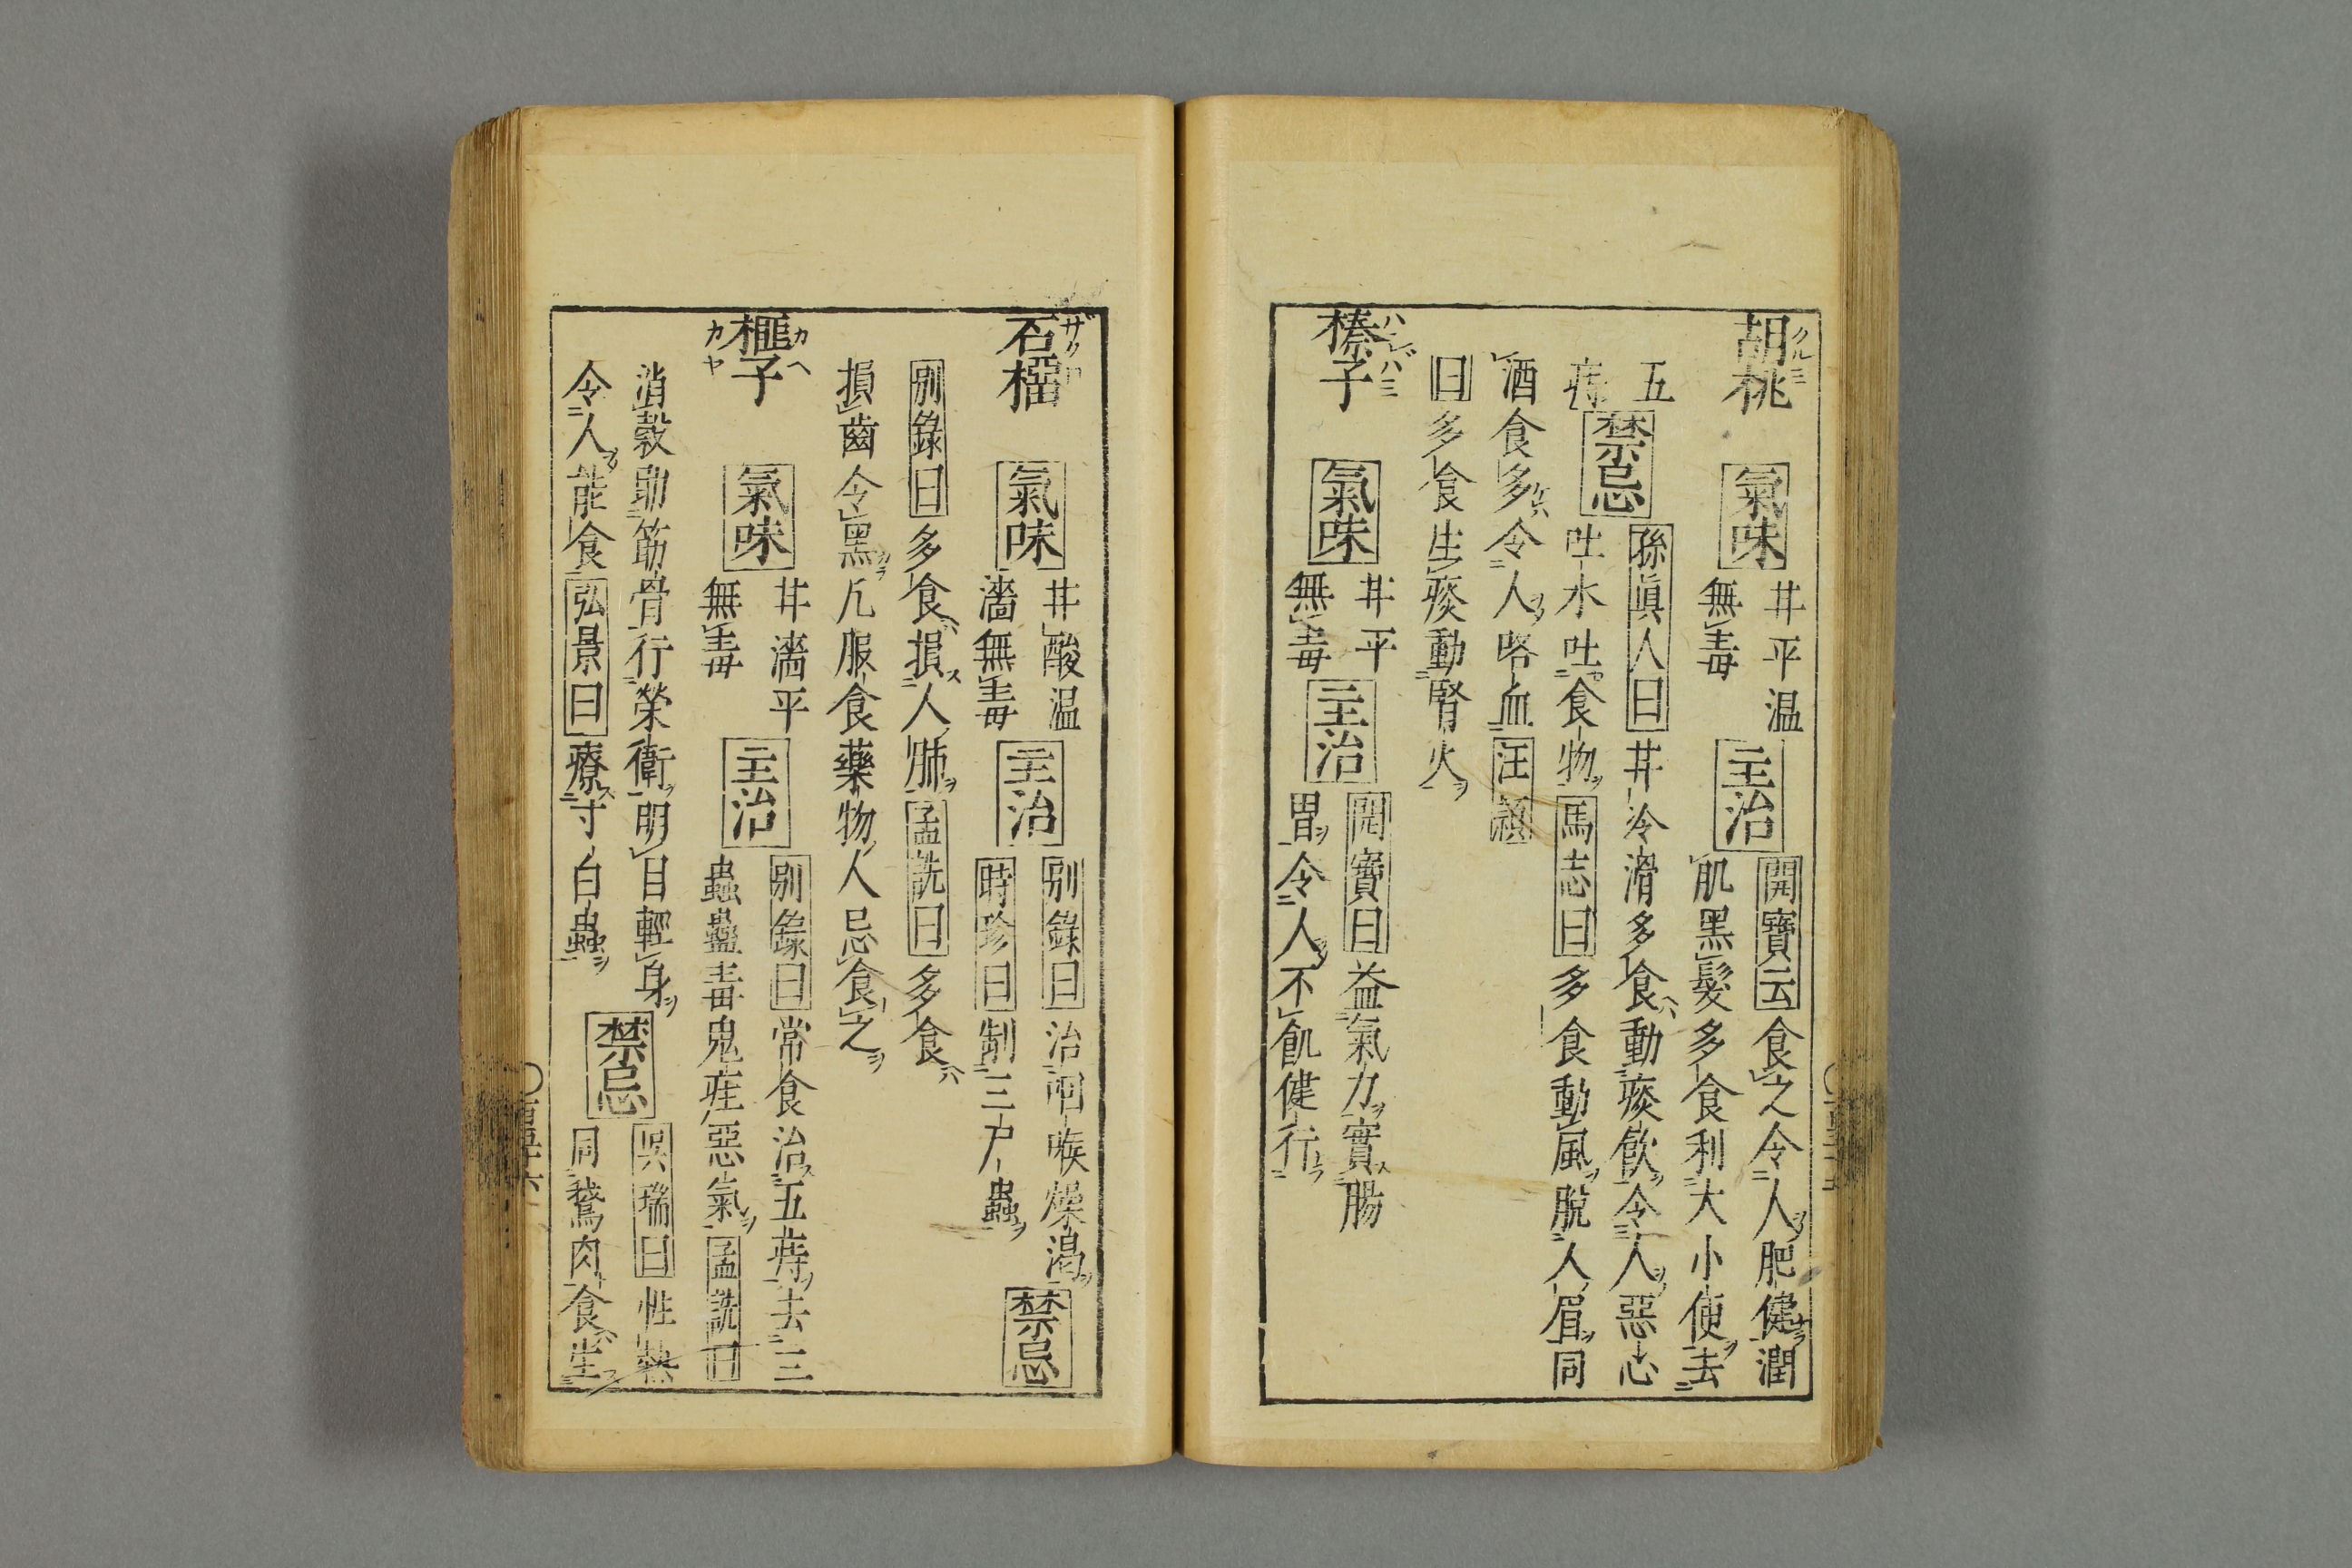 胡桃 クルミ
氣味
甘平温
無毒
主治
開寶云食之令人肥健潤
肌黑髮多食利大小便去
五
痔
禁忌
孫眞人曰甘冷滑多食動痰飮令人惡心
吐水吐食物馬志曰多食動風脫人眉同
酒食多令人咯血汪穎
曰多食生痰動腎火
榛子 ハシバミ
氣味
甘平
無毒
主治
開寶曰益氣力實腸
胃令人不飢健行
石榴 ザクロ
氣味
甘酸温
濇無毒
主治
別錄曰治咽喉燥渴
時珍曰制三尸蟲
禁忌
別錄曰多食損人肺孟詵曰多食
損齒令黑凡服食藥物人忌食之
榧子 カヘ カヤ
氣味
甘濇平
無毒
主治
別錄曰常食治五痔去三
蟲蠱毒鬼疰惡氣孟詵曰
消穀助筋骨行榮衛明目輕身
令人能食弘景曰療寸白蟲
禁忌
吳瑞曰性熱
同鵞肉食生
〇百五十六